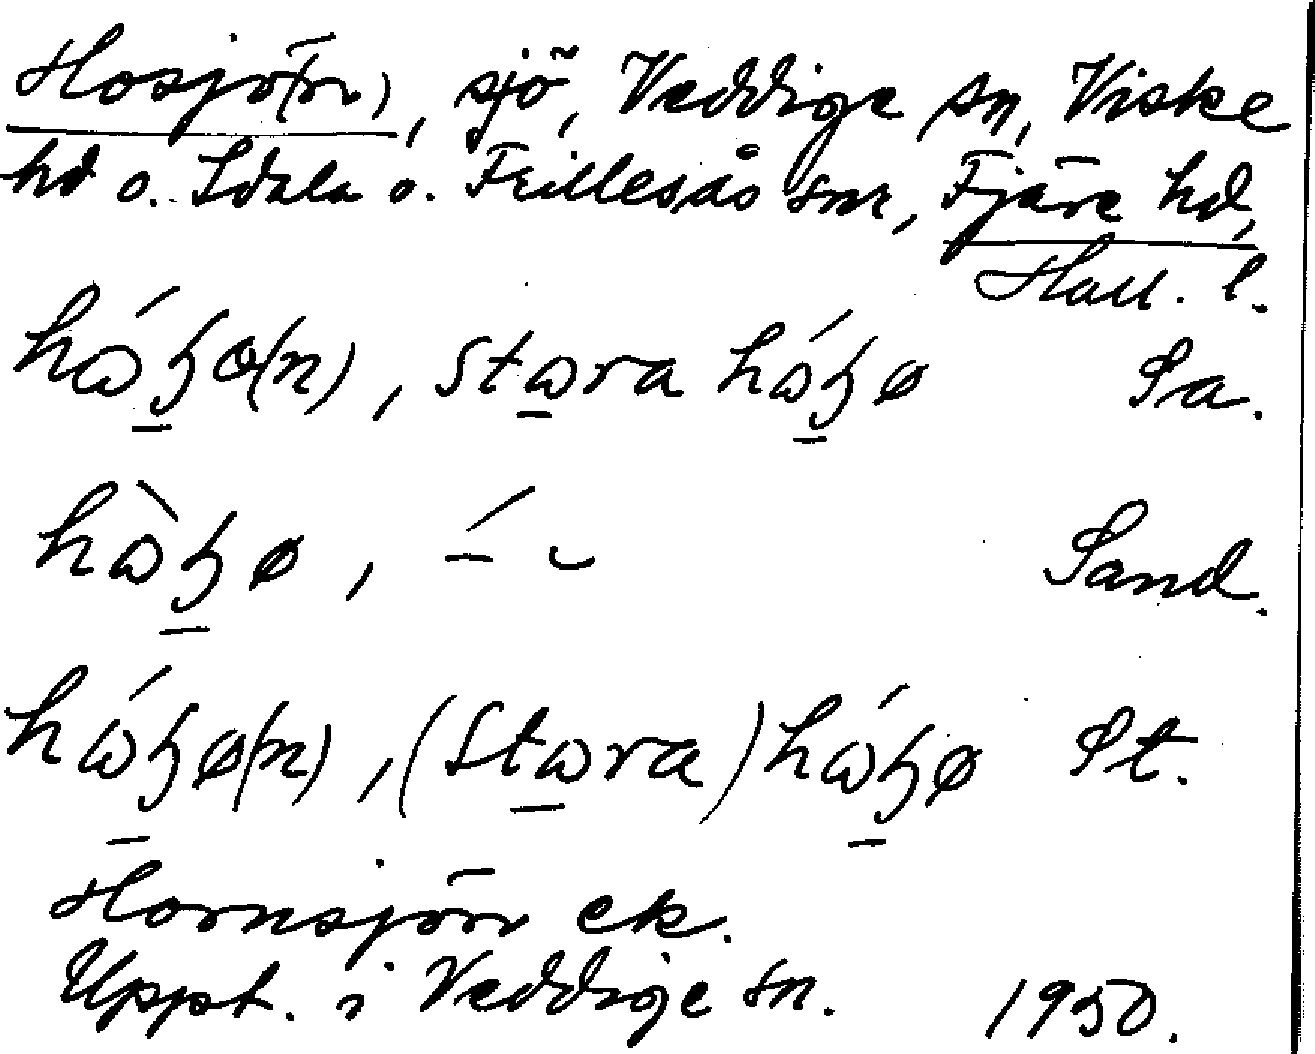 Hosjö(n), sjö, Veddige sn, Viske
hd o. Idala o. Frillesås snr, Fjäre hd,
Hall. l.
hɷ́ʒø(n), stɷra hɷ́ʒø Sa.
hɷ̀ʒø, –́ ⌣ Sand.
hɷ́ʒø(n), (stɷra) hɷ́ʒø St.
Hornsjön ek.
Uppt. i Veddige sn. 1950.